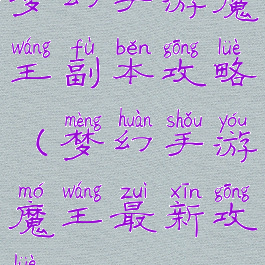 梦幻手游魔
wáng fù běn gōng lüè
王副本攻略
mèng huàn shǒu yóu
（梦幻手游
mó wáng zuì xīn gōng
魔王最新攻
lüè